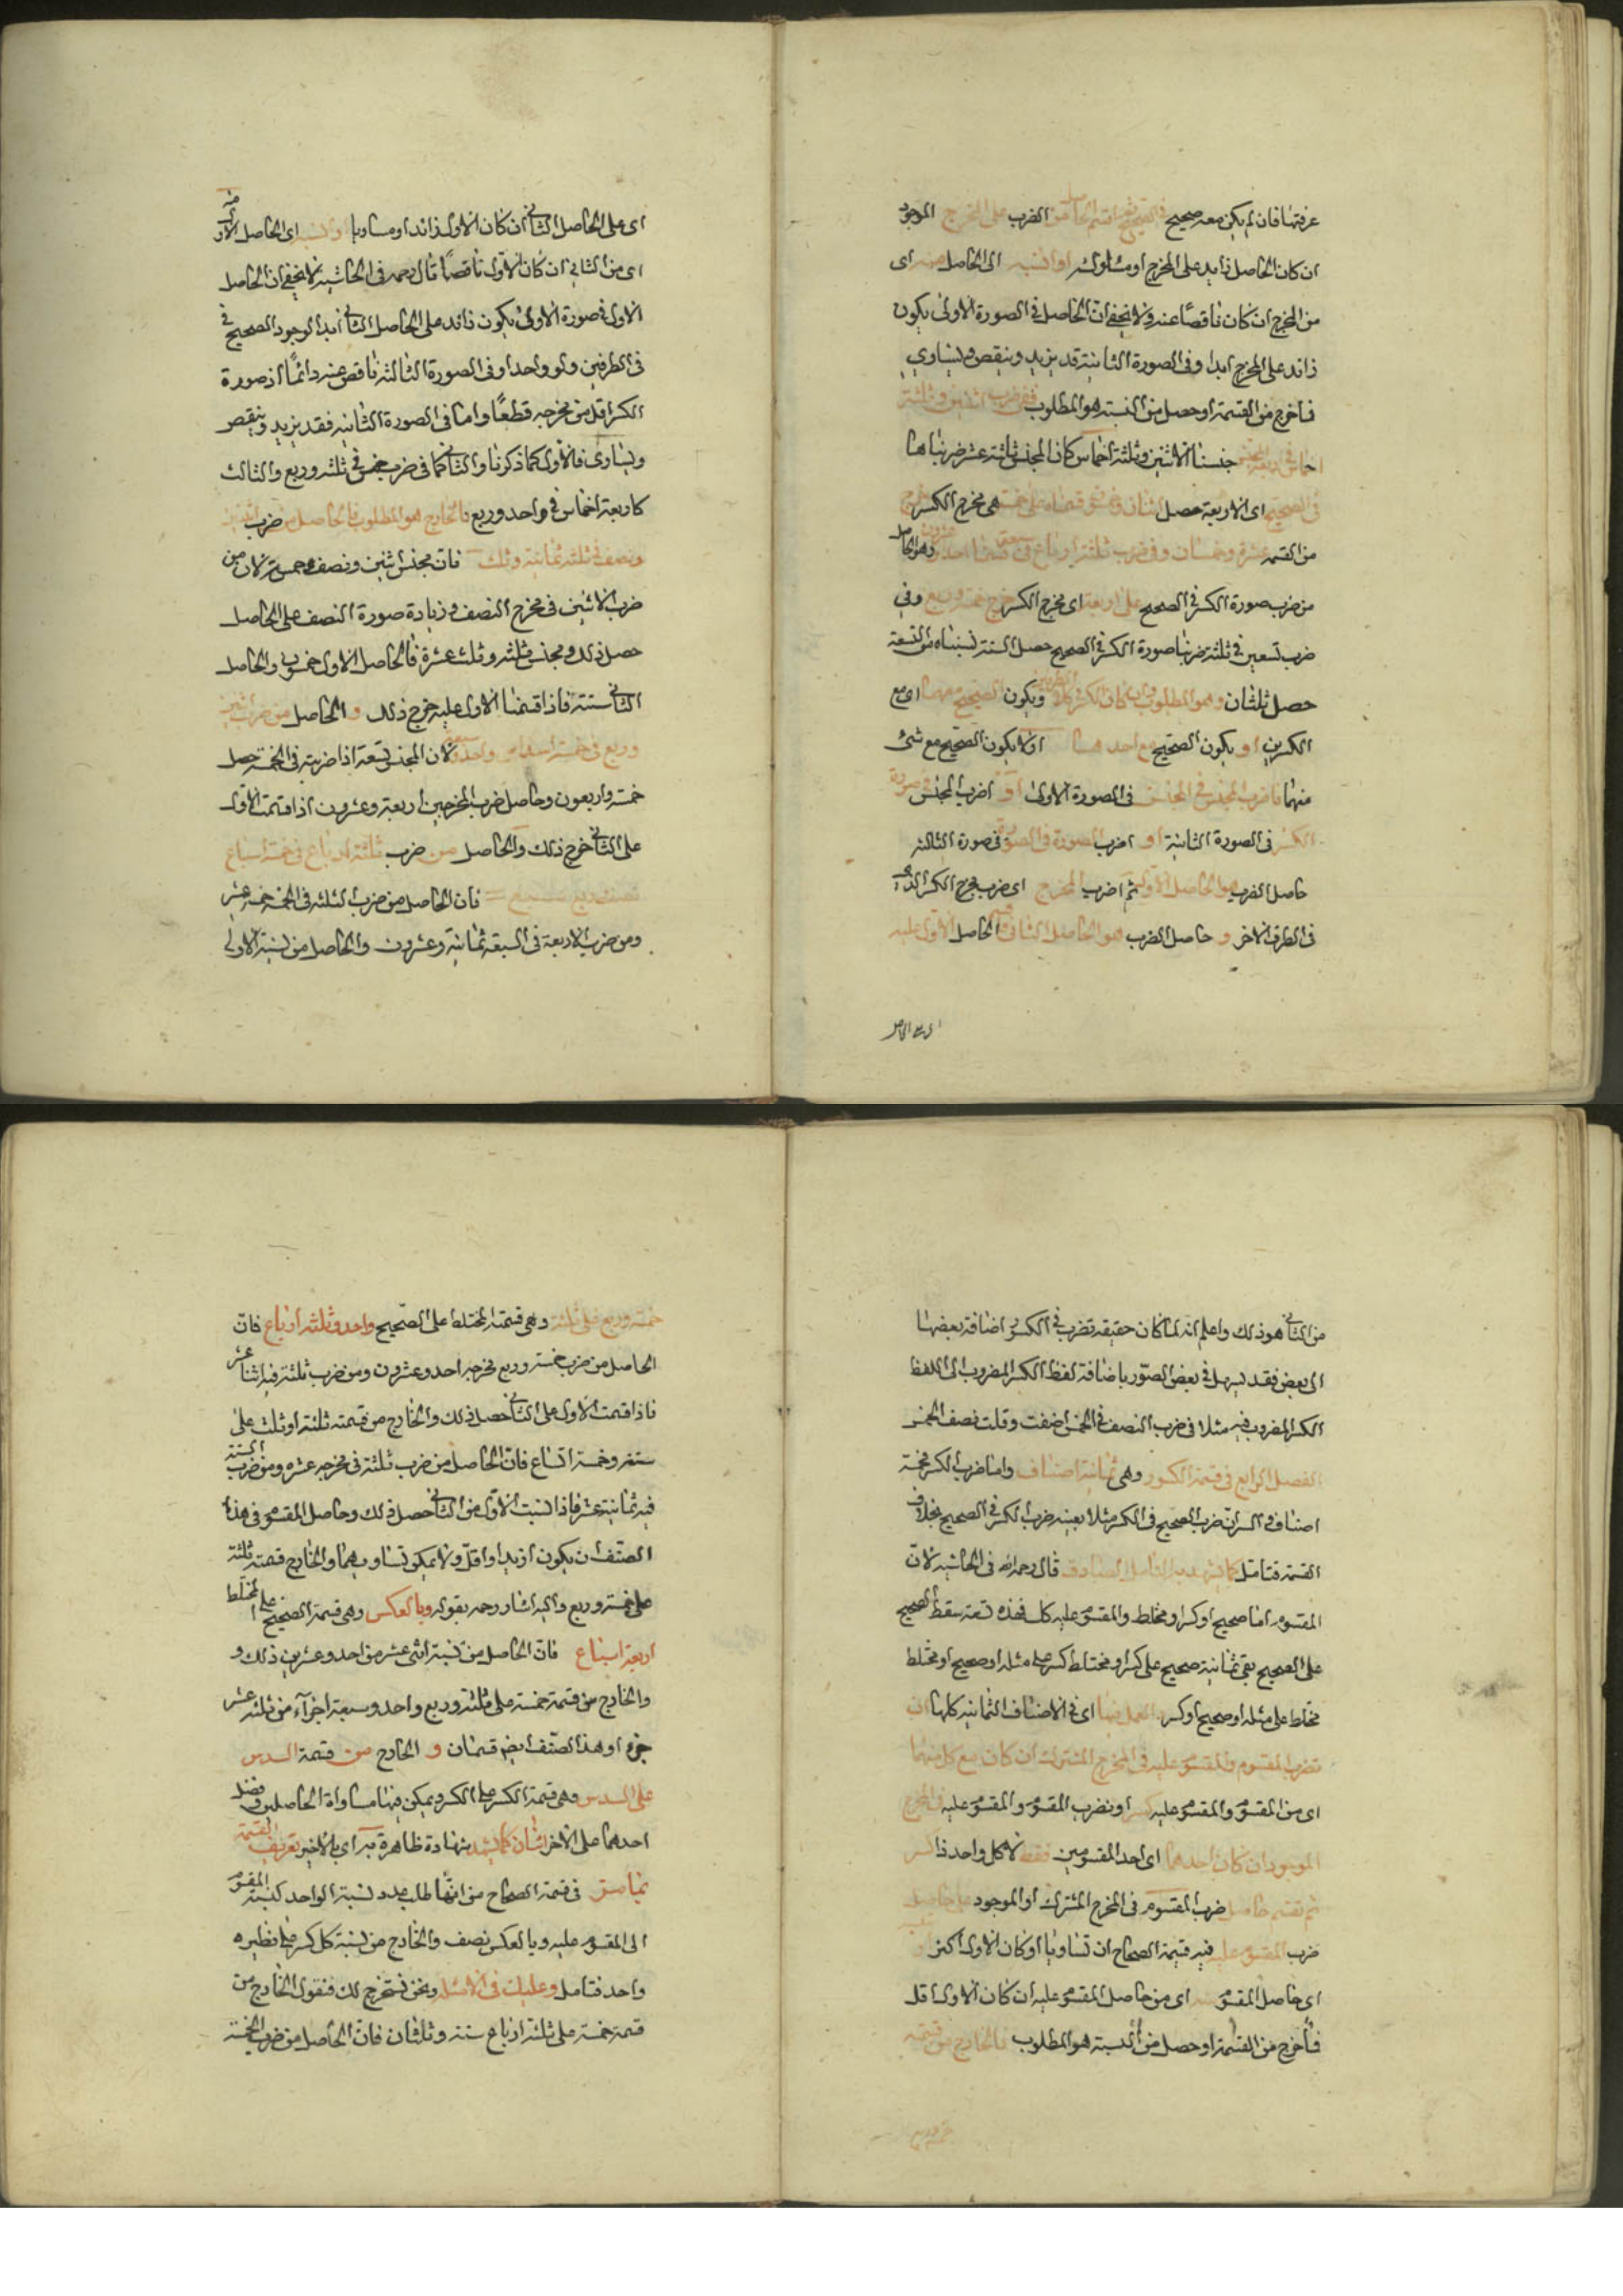 عرفتها فان لم يكن معه صحيح فاقسم الحاصل من الضرب على المخرج الموجود
ان كان الحاصل زايد على المخرج او مساويا له او انسبه الى الحاصل منه اى
من المخرج ان كان ناقصا عنه ولا يخفى ان الحاصل فى الصورة الاولى يكون
زائد على المخرج ابدا وفى الصورة الثانية قد يزيد وينقص ويساوي
فما خرج من القسمة او حصل من النسبة هو المطلوب ففى ضرب اثنين وثلثة
اخماس فى اربعة المجنس جنسنا الاثنين وثلثة اخماس كان المجنس ثلثة عشر ضربناها
فى الصحيح اى الاربعة حصل اثنان وخمسون قسمناه على خمسة هى مخرج الكسر خرج
من القسمة عشرة وخمسان وفى ضرب ثلثة ارباع فى سبعة قسمنا احد وعشرين وهو الحاصل
من ضرب صورة الكسر فى الصحيح على اربعة اى مخرج الكسر خرج خمسة وربع وفي
ضرب تسعين فى ثلثة ضربنا صورة الكسر فى الصحيح حصل الستة نسبناه من التسعة
حصل ثلثان وهو المطلوب وان كان الكسر فى كلا الطرفين ويكون الصحيح معهما اى مع
الكسرين او يكون الصحيح مع احدهما او لا يكون الصحيح مع شئ
منهما فاضرب المجنس فى المجنس فى الصورة الاولى او اضرب المجنس فى صورة
الكسر فى الصورة الثانية او اضرب الصورة فى الصورة فى صورة الثالثة
حاصل الضرب هو الحاصل الاول ثم اضرب المخرج اى ضرب مخرج الكسر الذى
فى الطرف الاخر و حاصل الضرب هو الحاصل الثانى الحاصل الاول عليه
اى على الحاصل الثانى ان كان الاول زائد او مساويا او انسبه اى الحاصل الاول منه
اى من الثاني ان كان الاول ناقصا قال رحمه فى الحاشية لا يخفى ان الحاصل
الاول فى صورة الاولى يكون زائد على الحاصل الثانى ابدا لوجود الصحيح فى
فى الطرفين ولو واحدا وفى الصورة الثالثة ناقص عنه دائما اذ صورة
الكسر اقل من مخرجه قطعا واما فى الصورة الثانية فقد يزيد وينقص
ويساوى فالاول كما ذكرنا والثانى كما فى ضرب خمس فى ثلثة وربع والثالث
كاربعة اخماس فى واحد وربع فالخارج هو المطلوب فالحاصل من ضرب اثنين
ونصف فى ثلثة ثمانية وثلث فان مجنس اثنين ونصف خمسة لان من
ضرب الاثنين فى مخرج النصف وزيادة صورة النصف على الحاصل
حصل ذلك ومجنس ثلثة وثلث عشرة فالحاصل الاول خمسون والحاصل
الثانى ستة فاذا قسمنا الاول عليه خرج ذلك و الحاصل من ضرب اثنين
وربع فى خمسة اسداس واحد لان المجنس تسعة اذا ضربته فى الخمسة حصل
خمسة واربعون وحاصل ضرب المخرجين اربعة وعشرون اذا قسمت الاول
على الثانى خرج ذلك والحاصل من ضرب ثلثة ارباع فى خمسة اسباع
نصف وربع سبع فان الحاصل من ضرب الثلثة فى الخمسة خمسة عشر
ومن ضرب الاربعة فى السبعة ثمانية وعشرون والحاصل من نسبة الاولى
من الثانى هو ذلك واعلم انه لما كان حقيقة تضرب فى الكسور اضافة بعضها
الى بعض فقد يسهل فى بعض الصور باضافة لفظ الكسر المضروب الى اللفظ
الكسر المضروب فيه مثلا فى ضرب النصف فى الخمس اضفت وقلت نصف الخمس
الفصل الرابع فى قسمة الكسور وهى ثمانية اصناف واما ضرب الكسر فخمسة
اصناف والسر ان ضرب الصحيح فى الكسر مثلا بعينه ضرب الكسر فى الصحيح بخلاف
القسمة فتامل كما يشهد به التامل الصادق قال رحمه الله فى الحاشية لان
المقسوم اما صحيح او كسر او مختلط والمقسوم عليه كل فهذه تسعة سقط الصحيح
على الصحيح بقى ثمانية صحيح على كسر او مختلط كسر على مثله او صحيح او مختلط
مختلط على مثله او صحيح او كسر والعمل فيها اى فى الاصناف الثمانية كلها ان
تضرب المقسوم والمقسوم عليه فى المخرج المشترك ان كان مع كل منهما
اى من المقسوم والمقسوم عليه كسر او تضرب المقسوم والمقسوم عليه فى المخرج
الموجود ان كان احدهما اى احد المقسومين فقط لا كل واحد ذا كسر
ثم تقسم حاصل ضرب المقسوم فى المخرج المشترك او الموجود على حاصل
ضرب المقسوم عليه فيه قسمة الصحاح ان تساويا او كان الاول اكثر او تنسبه
اى حاصل المقسوم منه اى من حاصل المقسوم عليه ان كان الاول اقل
فما خرج من القسمة او حصل من النسبة هو المطلوب فالخارج من قسمة
خمسة وربع على ثلثة وهى قسمة المختلط على الصحيح واحد وثلثة ارباع فان
الحاصل من ضرب خمسة وربع مخرجه احد وعشرون ومن ضرب ثلثة فيه اثنا عشر
فاذا قسمت الاول على الثانى حصل ذلك والخارج من قسمته ثلثة او ثلث على
ستة وخمسة اتساع فان الحاصل من ضرب ثلثة فى مخرجه عشرة ومن ضرب الستة
فيه ثمانية عشر فاذا نسبت الاول من الثانى حصل ذلك وحاصل المقسوم فى هذا
الصنف ان يكون ازيد او اقل ولا يمكن تساويهما والخارج قسمة ثلثة
على خمسة وربع واليه اشار رحمه بقوله وبالعكس وهى قسمة الصحيح على المختلط
اربعة اسباع فان الحاصل من نسبة اثنى عشر من احد وعشرين ذلك و
والخارج من قسمة خمسة على ثلثة وربع واحد وسبعة اجزآء من ثلثة عشر
جزء او هذا الصنف ايضم قسمان و الخارج من قسمة السدس
على السدس وهى قسمة الكسر على الكسر ويمكن فيها مساواة الحاصلين وفضل
احدهما على الاخر اثنان كما يشهد شهادة ظاهرة اى بالاخير تعريف القسمة
بما مر فى قسمة الصحاح من انها طلب عدد نسبة الواحد كنسبة المقسوم
الى المقسوم عليه وبالعكس نصف والخارج من نسبة كل كسر على نظيره
واحد فتامل وعليك فى الامثلة ونحن نستخرج لك فنقول الخارج من
قسمة خمسة على ثلثة ارباع ستة وثلثان فان الحاصل من ضرب الخمسة